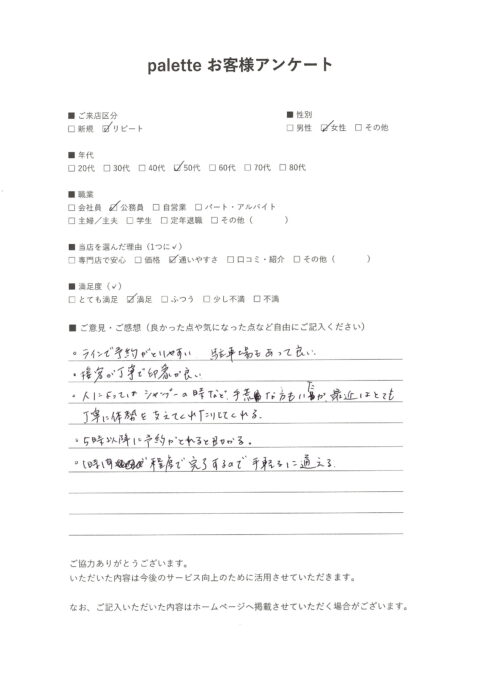 palette お客様アンケート
■ ご来店区分
□ 新規 ☑ リピート
■ 性別
□ 男性 ☑ 女性 □ その他
■ 年代
□ 20代 □ 30代 □ 40代 ☑ 50代 □ 60代 □ 70代 □ 80代
■ 職業
□ 会社員 ☑ 公務員 □ 自営業 □ パート・アルバイト
□ 主婦／主夫 □ 学生 □ 定年退職 □ その他（　　　）
■ 当店を選んだ理由（1つに✓）
□ 専門店で安心 □ 価格 ☑ 通いやすさ □ 口コミ・紹介 □ その他（　　　）
■ 満足度（✓）
□ とても満足 ☑ 満足 □ ふつう □ 少し不満 □ 不満
■ ご意見・ご感想（良かった点や気になった点など自由にご記入ください）
。ラインで予約がとりやすい　駐車場もあって良い。
。接客が丁寧で印象が良い
。人によってはシャンプーの時など、手荒な方もいたが、最近はとても
丁寧に体勢を支えてくれたりしてくれる。
。5時以降に予約がとれると助かる。
。1時間程度で完了するので手軽に通える。
ご協力ありがとうございます。
いただいた内容は今後のサービス向上のために活用させていただきます。
なお、ご記入いただいた内容はホームページへ掲載させていただく場合がございます。